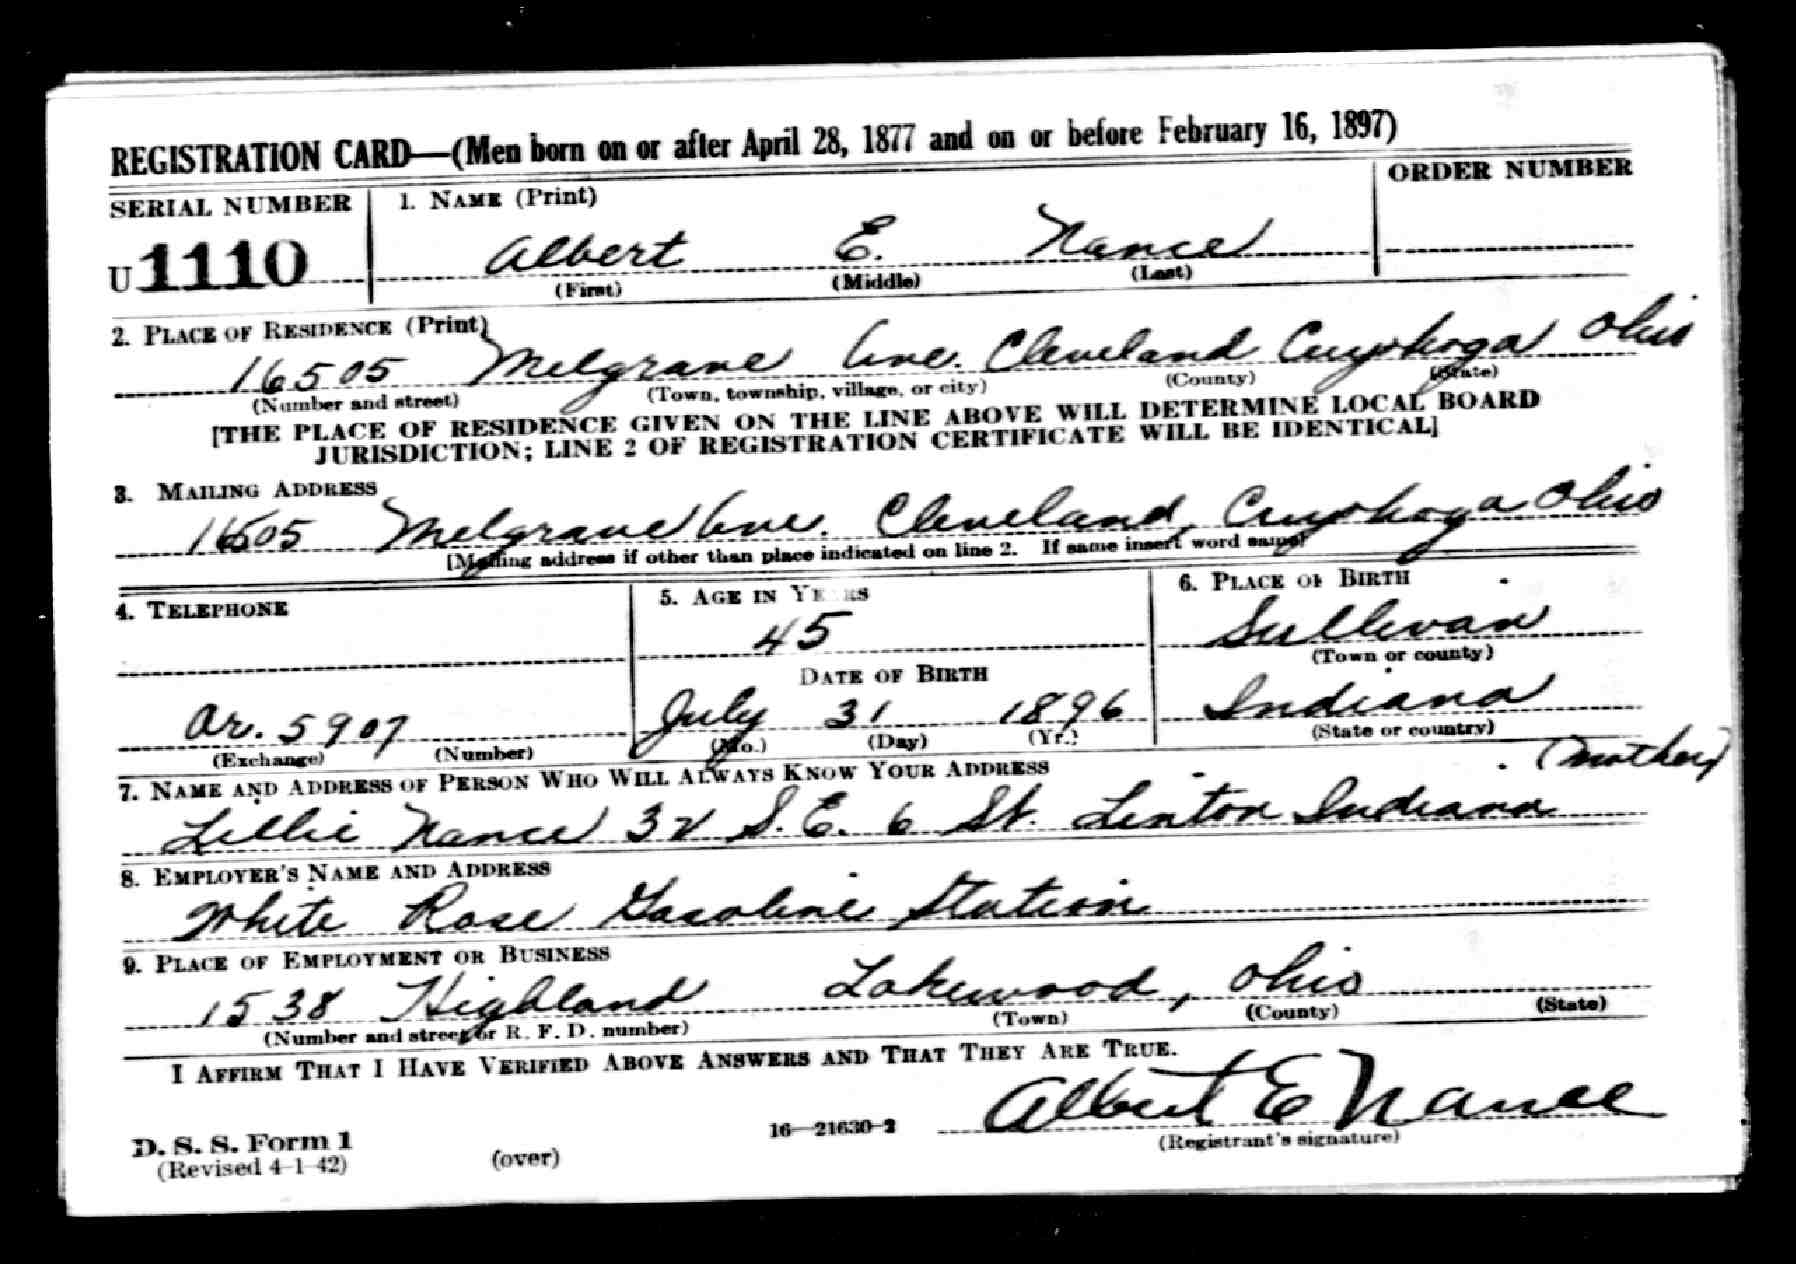 REGISTRATION CARD—(Men born on or after April 28, 1877 and on or before February 16, 1897)
SERIAL NUMBER 1. NAME (Print) ORDER NUMBER
U 1110 Albert E. Nance
(First) (Middle) (Last)
2. PLACE OF RESIDENCE (Print)
16505 Melgrave Ave. Cleveland Cuyohoga Ohio
(Number and street) (Town, township, village, or city) (County) (State)
[THE PLACE OF RESIDENCE GIVEN ON THE LINE ABOVE WILL DETERMINE LOCAL BOARD
JURISDICTION; LINE 2 OF REGISTRATION CERTIFICATE WILL BE IDENTICAL]
3. MAILING ADDRESS
16505 Melgrave Ave. Cleveland, Cuyohoga Ohio
[Mailing address if other than place indicated on line 2. If same insert word same]
4. TELEPHONE 5. AGE IN YEARS 6. PLACE OF BIRTH
45 Sullivan
(Town or county)
DATE OF BIRTH
Ar. 5907 July 31 1896 Indiana
(Exchange) (Number) (Mo.) (Day) (Yr.) (State or country)
7. NAME AND ADDRESS OF PERSON WHO WILL ALWAYS KNOW YOUR ADDRESS (Mother)
Lillie Nance S.E. 6 St. Linton Indiana
8. EMPLOYER'S NAME AND ADDRESS
White Rose Gasoline Station
9. PLACE OF EMPLOYMENT OR BUSINESS
1538 Highland Lakewood, Ohio
(Number and street or R. F. D. number) (Town) (County) (State)
I AFFIRM THAT I HAVE VERIFIED ABOVE ANSWERS AND THAT THEY ARE TRUE.
Albert E Nance
D. S. S. Form 1 16—21630-2 (Registrant's signature)
(Revised 4-1-42) (over)